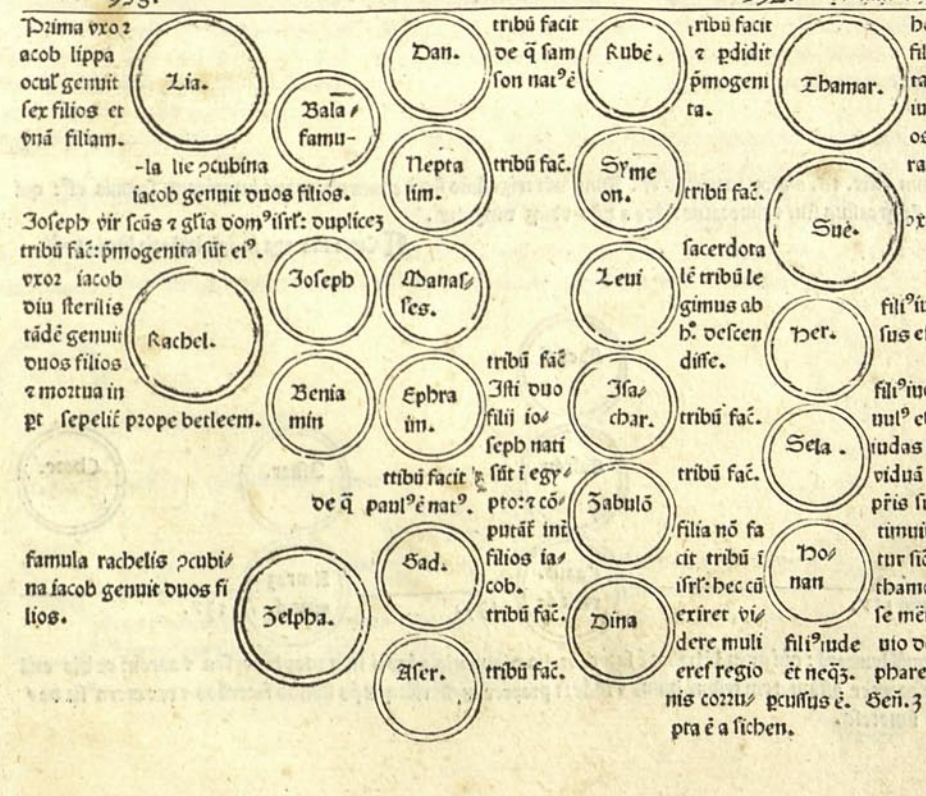 Prima vxor
iacob lippa
ocul' genuit
sex filios et
vnā filiam.
Lia.
Bala⸗
famu-
-la lie ꝯcubina
iacob genuit duos filios.
Joseph vir scūs ⁊ gl'ia domꝰ isrl': duplicez
tribū fac̄: p̄mogenita sūt eiꝰ.
vxor iacob
diu sterilis
tādē genuit
duos filios
⁊ mortua in
pt sepelit̄ prope betleem.
Rachel.
Joseph
Benia
min
famula rachelis ꝯcubi⸗
na iacob genuit duos fi
lios.
Zelpha.
Dan.
tribū facit
de q̄ sam
son natꝰ ē
Nepta
lim.
tribū fac̄.
Manas⸗
ses.
Ephra
im.
tribū fac̄
Isti duo
filij io⸗
seph nati
sūt i egy⸗
pto: ⁊ cō⸗
putāt̄ int̄
filios ia⸗
cob.
tribū facit
de q̄ paulꝰ ē natꝰ.
Gad.
tribū fac̄.
Aser.
tribū fac̄.
Rubē.
tribū facit
⁊ ꝑdidit
p̄mogeni
ta.
Syme
on.
tribū fac̄.
Leui
sacerdota
lē tribū le
gimus ab
h° descen
disse.
Isa⸗
char.
tribū fac̄.
Zabulō
tribū fac̄.
Dina
filia nō fa
cit tribū ī
isrl': hec cū
exiret vi⸗
dere muli
eres regio
nis corru⸗
pta ē a sichen.
Thamar.
Suē.
Her.
Sela.
Ho⸗
nan
filiꝰ iude
et neqꝫ.
ꝑcussus ē. Gen̄. 3
filiꝰ iu
sus e
filiꝰ iu
iudas
viduā
p̄ris
timui
tur
se
uio d
phare